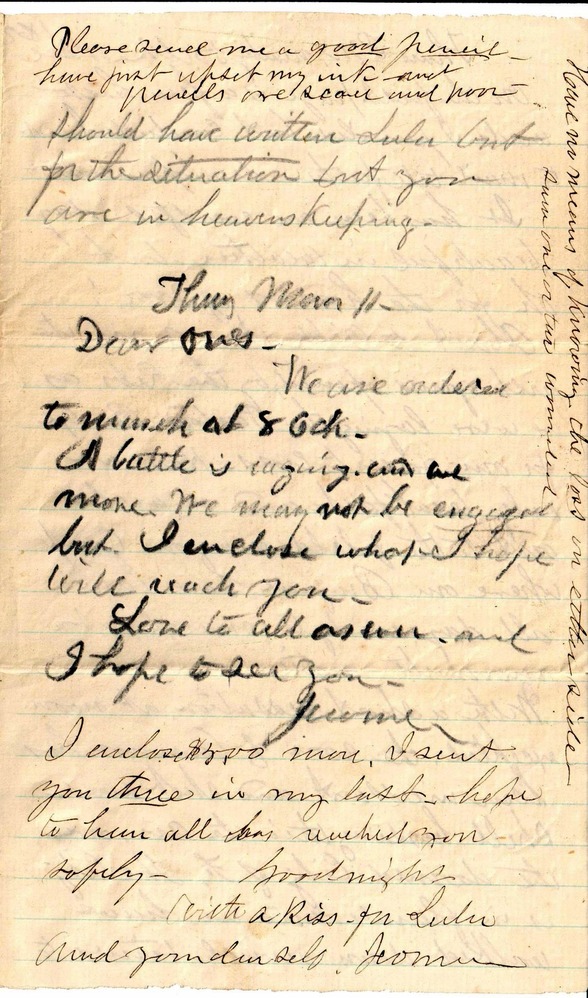 Please send me a good pencil
have just upset my ink and
pencils are scarce and poor
Should have written Lulu but
for the situation but you
are in heavens keeping.
Thurs Morn 11
Dear ones.
We are ordered
to march at 8 Ock.
A battle is raging. and we
move. We may not be engaged
but I enclose what I hope
will reach you
Love to all as ever. and
I hope to see you
Jerome
I enclose more. I sent
you three in my last. hope
to hear all has reached you
safely— Goodnight
With a kiss for Lulu
and yourself. Jerome
Have no means of knowing the loss on either side
saw one or two wounded